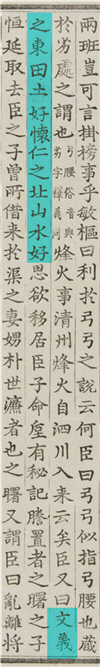 兩班豈可言掛榜事乎敏樞曰利於弓弓之說云何臣曰弓弓似指弓腰也藏
於劣處之謂也弓腰俗音與劣字釋義同烽火事清州烽火自泗川入来云矣臣又曰文義
之東田土好懷仁之北山水好思欲移居臣子命 有秘記謄置者之曙之子
恒延取去臣之子曾所借来於渠之妻娚朴世濂者也之曙又謂臣曰亂離將